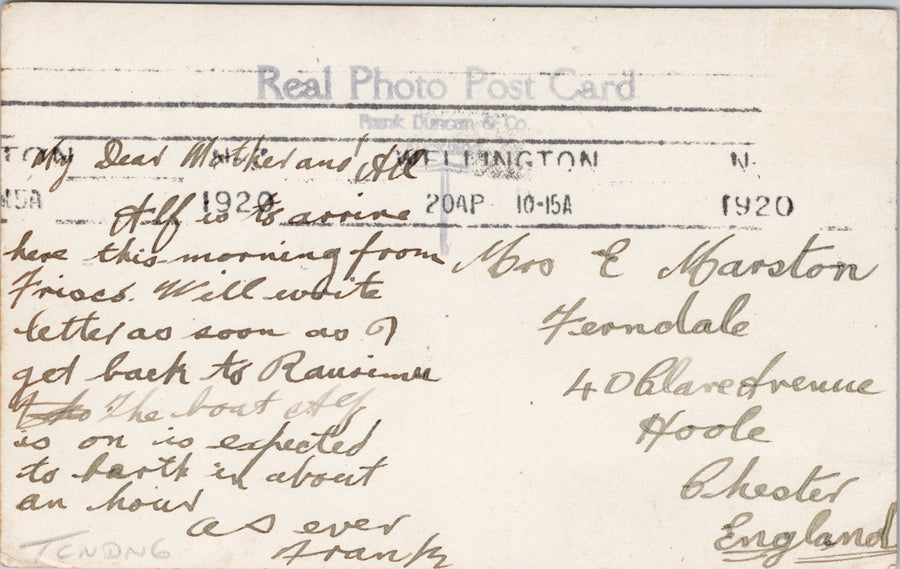 Real Photo Post Card
Frank Duncan & Co.
TON N.Z. WELLINGTON N.
15A 1920 20AP 10-15A 1920
My Dear Mother and All
Alf is to arrive
here this morning from
Frisco. Will write
letter as soon as I
get back to Raurimu
The boat Alf
is on is expected
to barth in about
an hour
as ever
Frank
Mrs E Marston
Ferndale
40 Clare Avenue
Hoole
Chester
England
TCNDNG